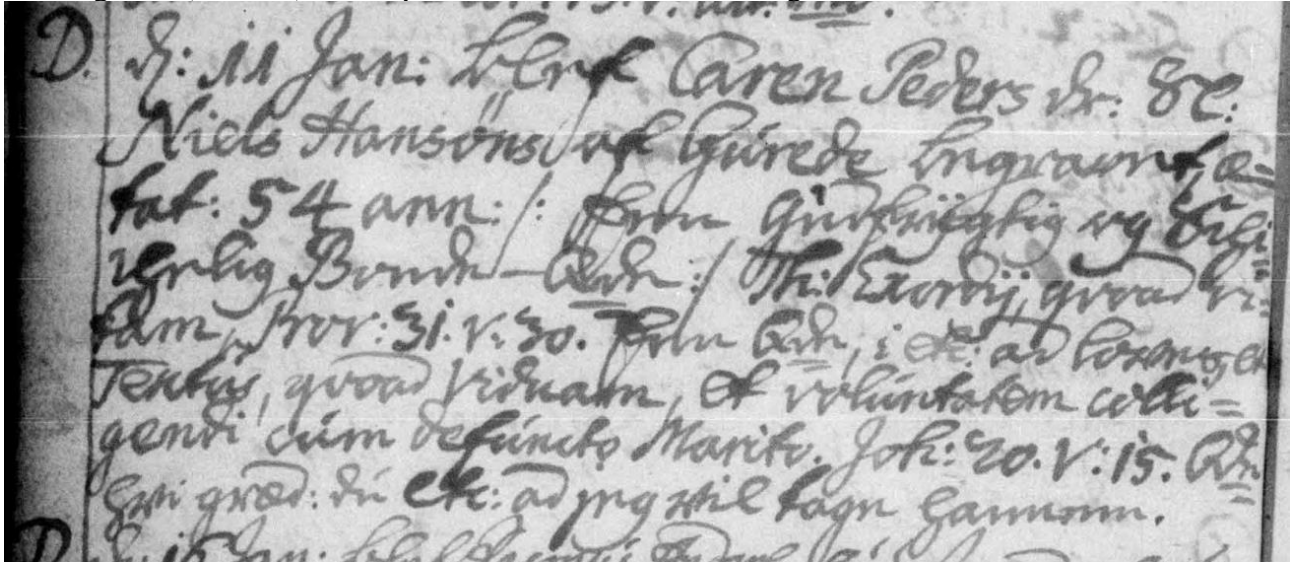 D. d: 11 Jan: blef Caren Peders dr: Sl:
Niels Hansöns af Gurede begravet, æ=
tat: 54 ann: /: Een Gudfrygtig og
ehrlig Bonde-Qvde :/ Th: Exordij, qvoad vi=
tam, Prov: 31. v: 30. Een Qvde, i etc: ad loves, et
Textus, qvoad viduam, et voluntatem colli=
gendi cum defuncto Marito. Joh: 20. v: 15. Qvde
hvi græd: du etc: ad jeg vil tage hannem.
D. d: 15 Jan: blef